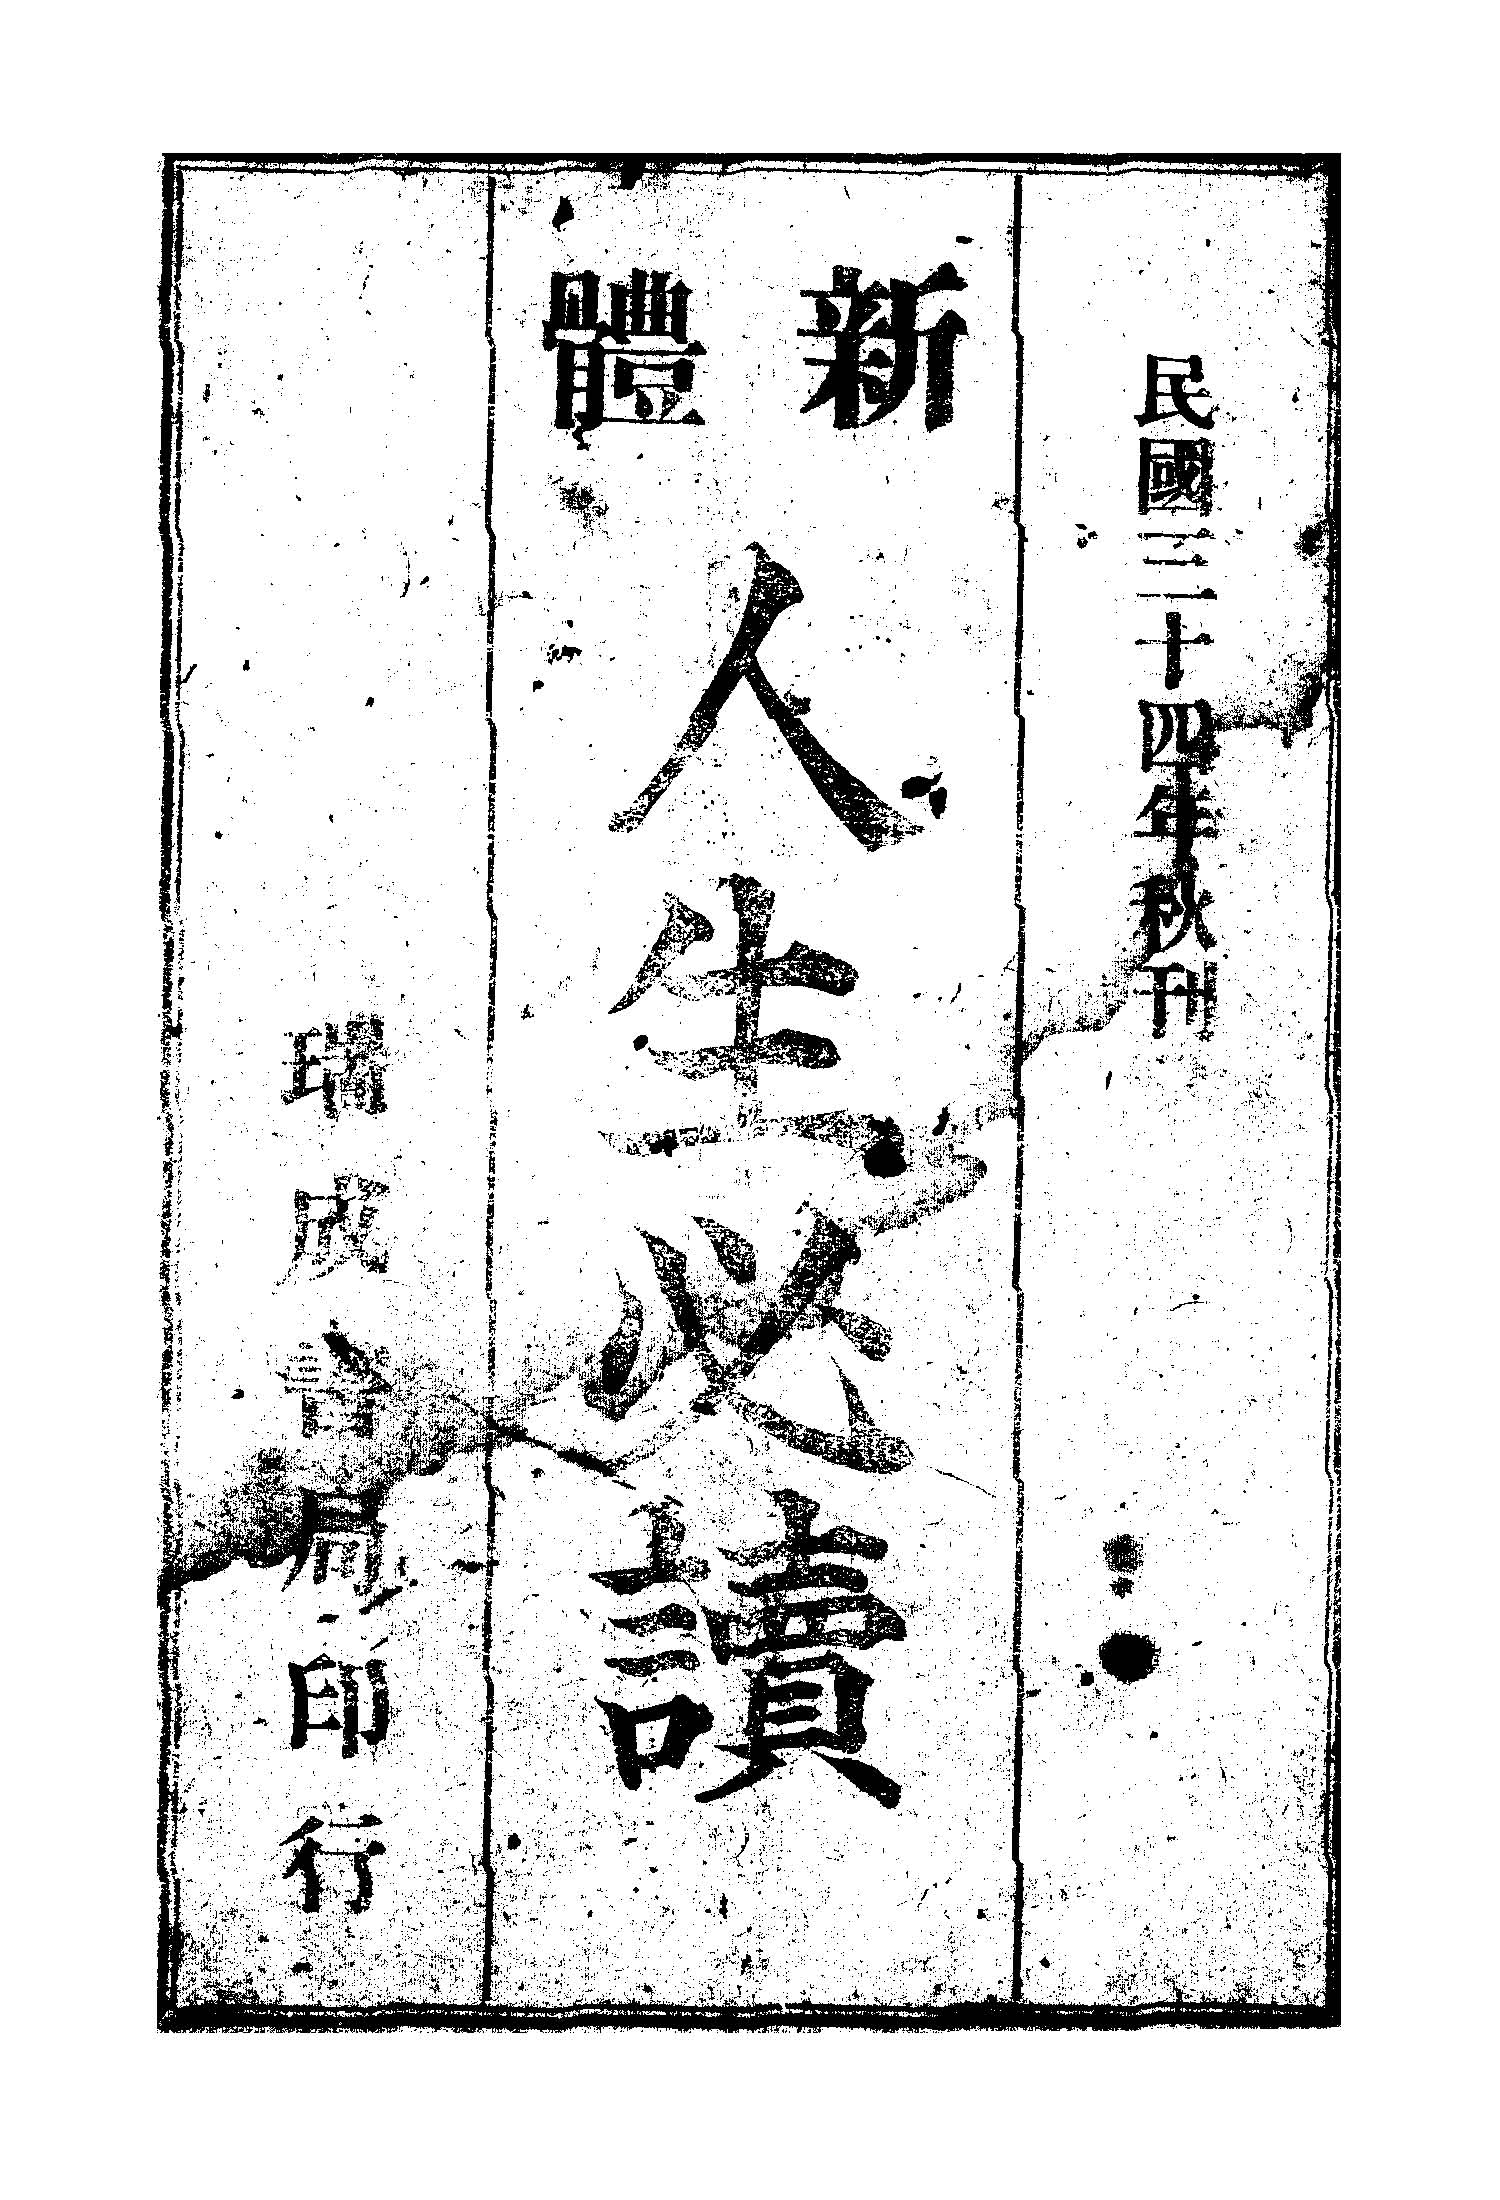 民國三十四年秋刊
新體
人生必讀
瑞成書局印行